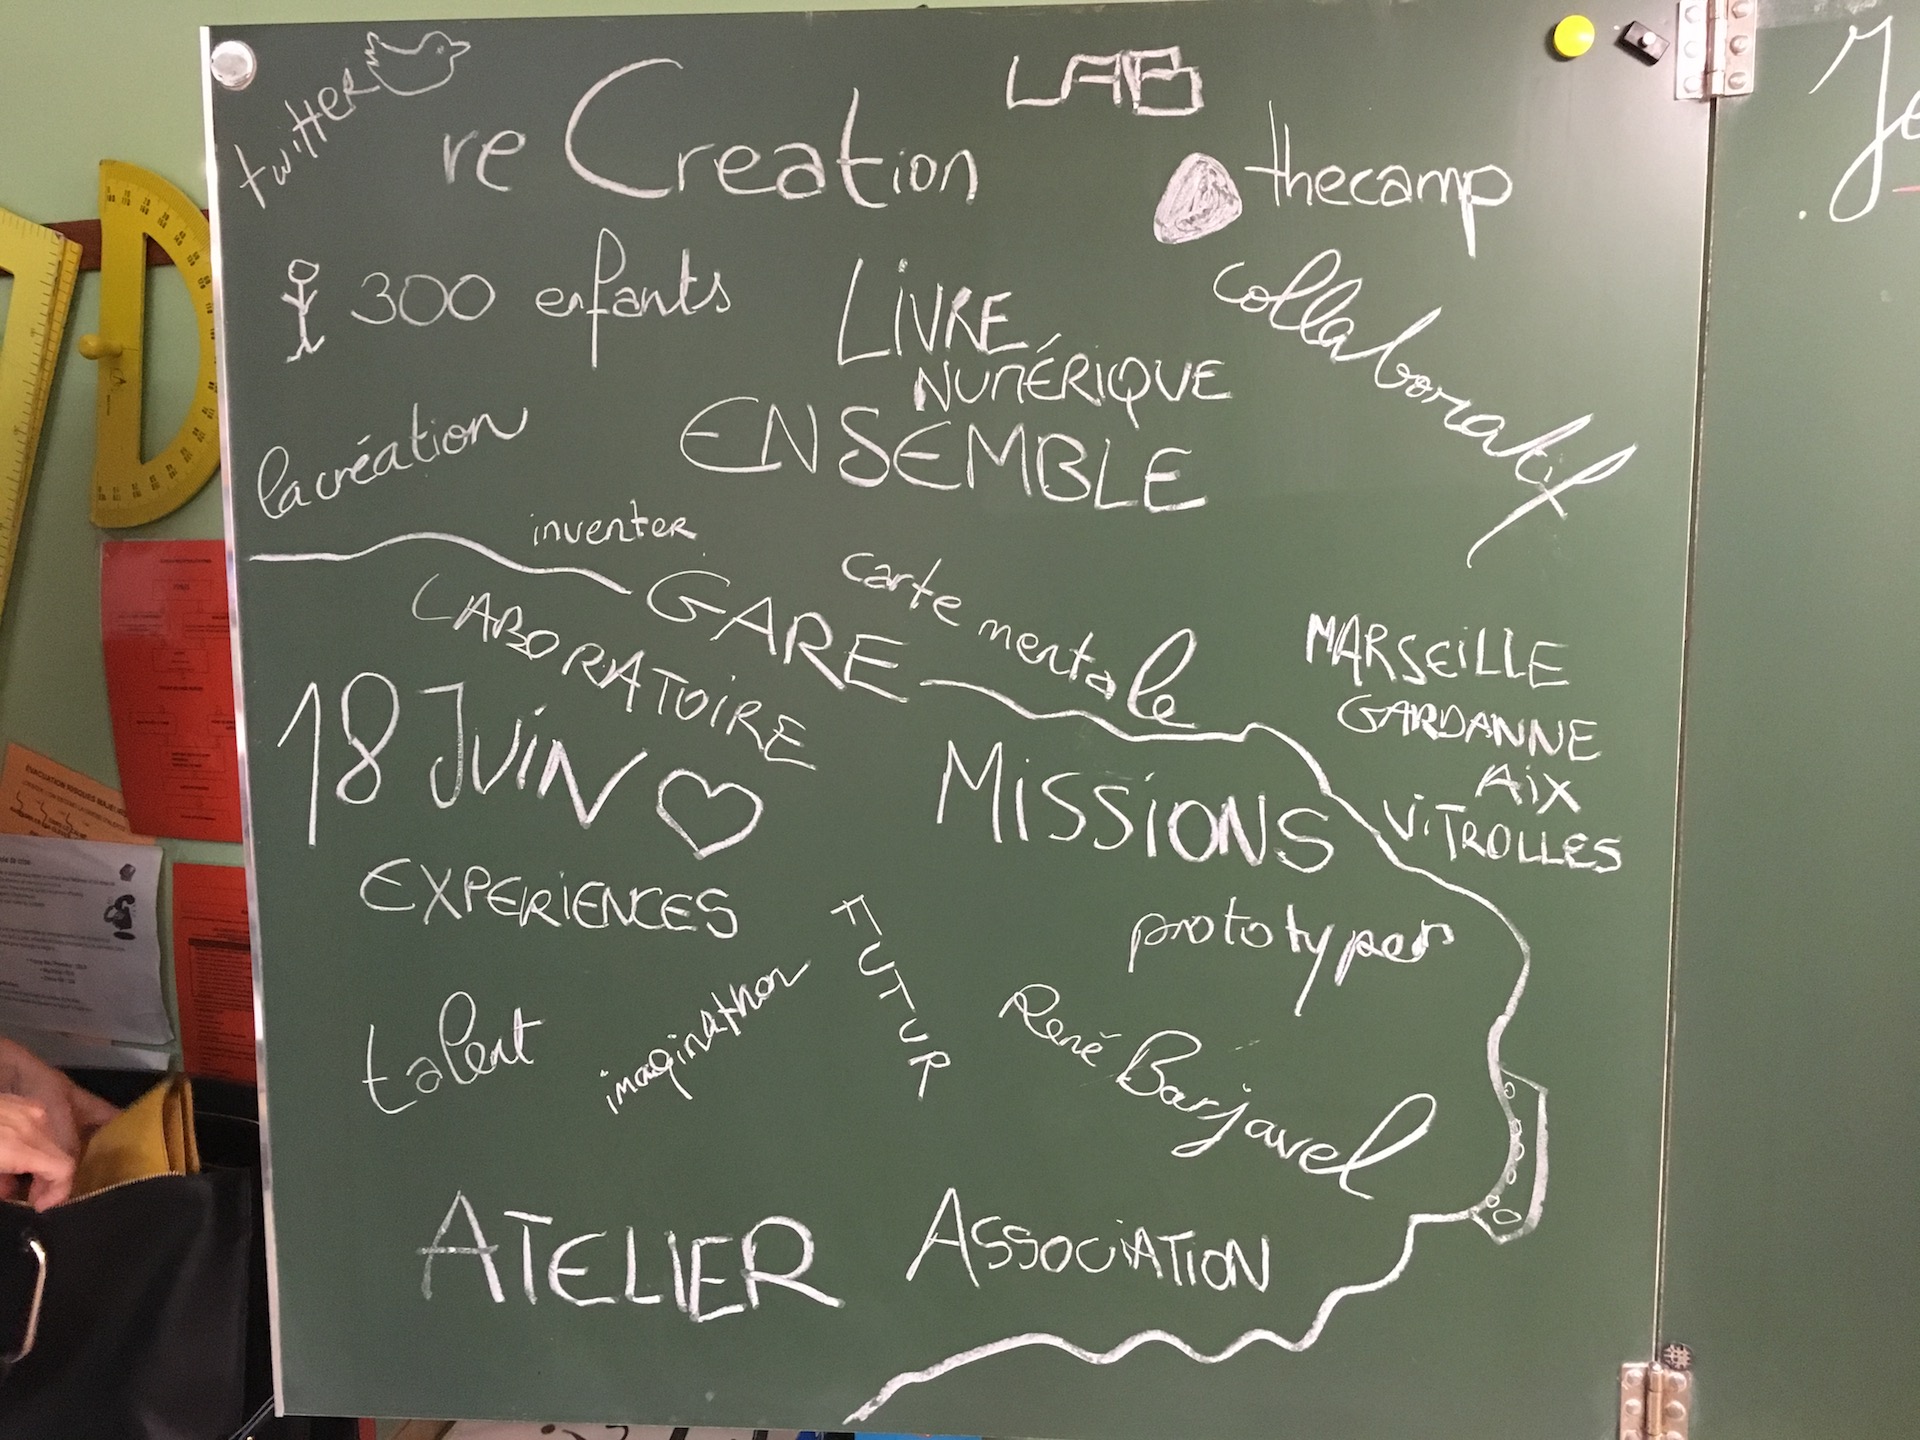 twitter
re Creation
LAB
thecamp
300 enfants
LiVRE
NUMÉRiQUE
collaboratif
la création
ENSEMBLE
inventer
carte mentale
GARE
LABORATOIRE
MARSEiLLE
GARDANNE
AiX
ViTROLLES
18 JUiN
MiSSiONS
EXPERiENCES
FUTUR
prototypes
talent
imaginathon
René Barjavel
ATELIER
ASSOCiATiON
Je